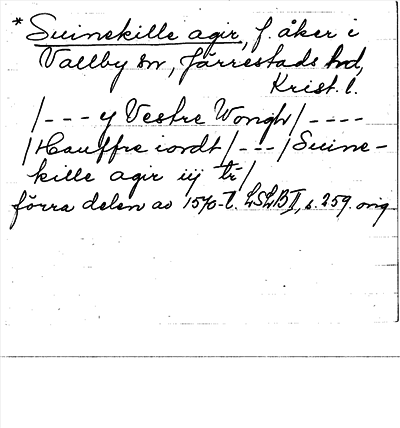 * Suinekille agir, f. åker i
Vallby sn, Järrestads hd,
Krist. l.
/ - - - y Vestre Wongh / - - - -
/ Hauffre iordt / - - - / Suine-
kille agir iij tr /
förra delen av 1570-t. LSLB II, s. 259. orig